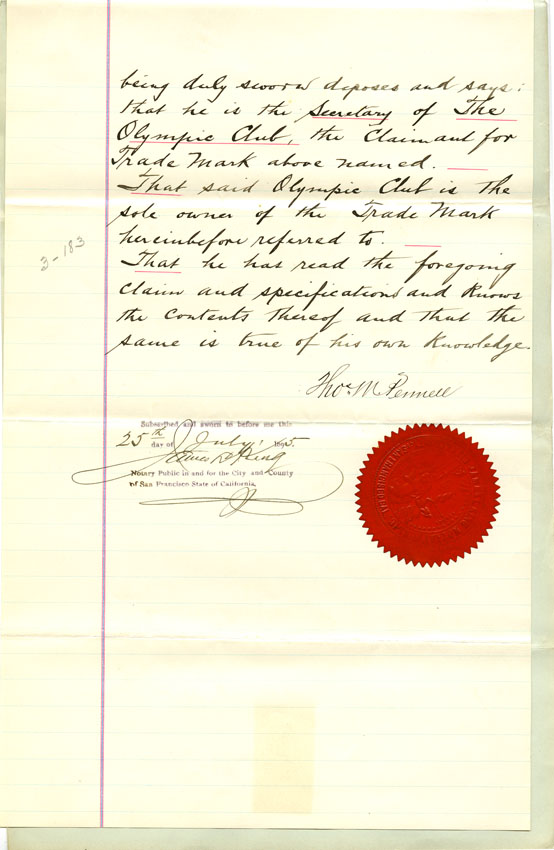 being duly sworn deposes and says:
that he is the Secretary of The
Olympic Club, the Claimant for
Trade Mark above named.
That said Olympic Club is the
sole owner of the Trade Mark
hereinbefore referred to.
That he has read the foregoing
Claim and specifications and Knows
the Contents thereof and that the
same is true of his own Knowledge.
3-183
Thos M Pennell
Subscribed and sworn to before me this
25th day of July, 1895.
James L. King
Notary Public in and for the City and County
of San Francisco State of California,